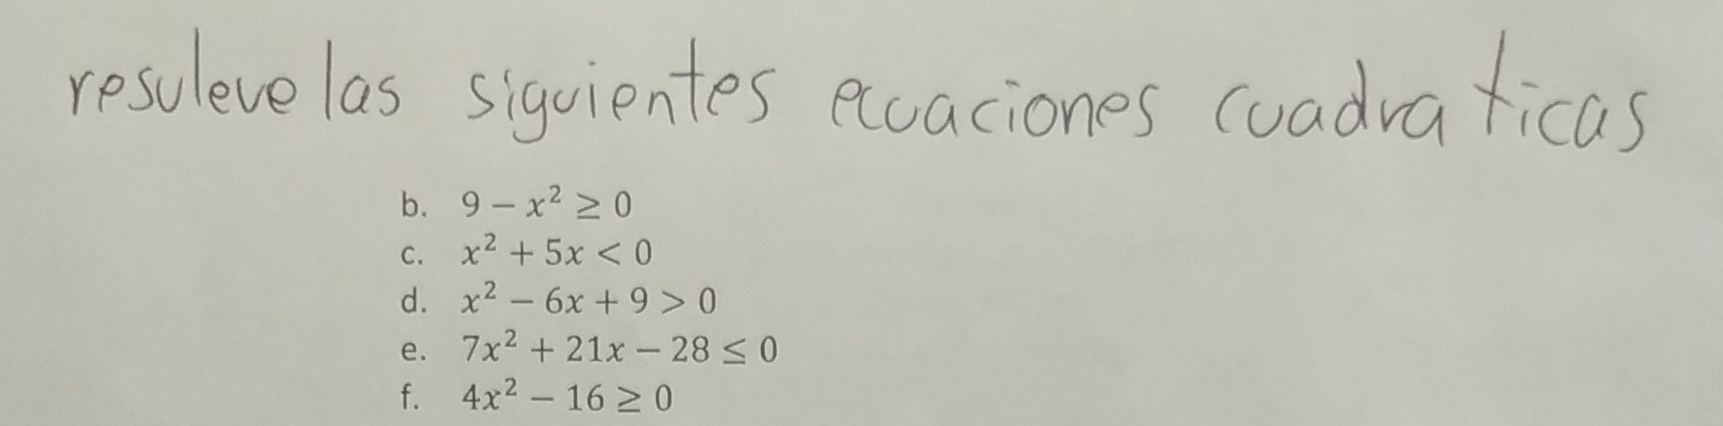 resuleve las siguientes ecuaciones cuadraticas
b. 9 − x² ≥ 0
c. x² + 5x < 0
d. x² − 6x + 9 > 0
e. 7x² + 21x − 28 ≤ 0
f. 4x² − 16 ≥ 0